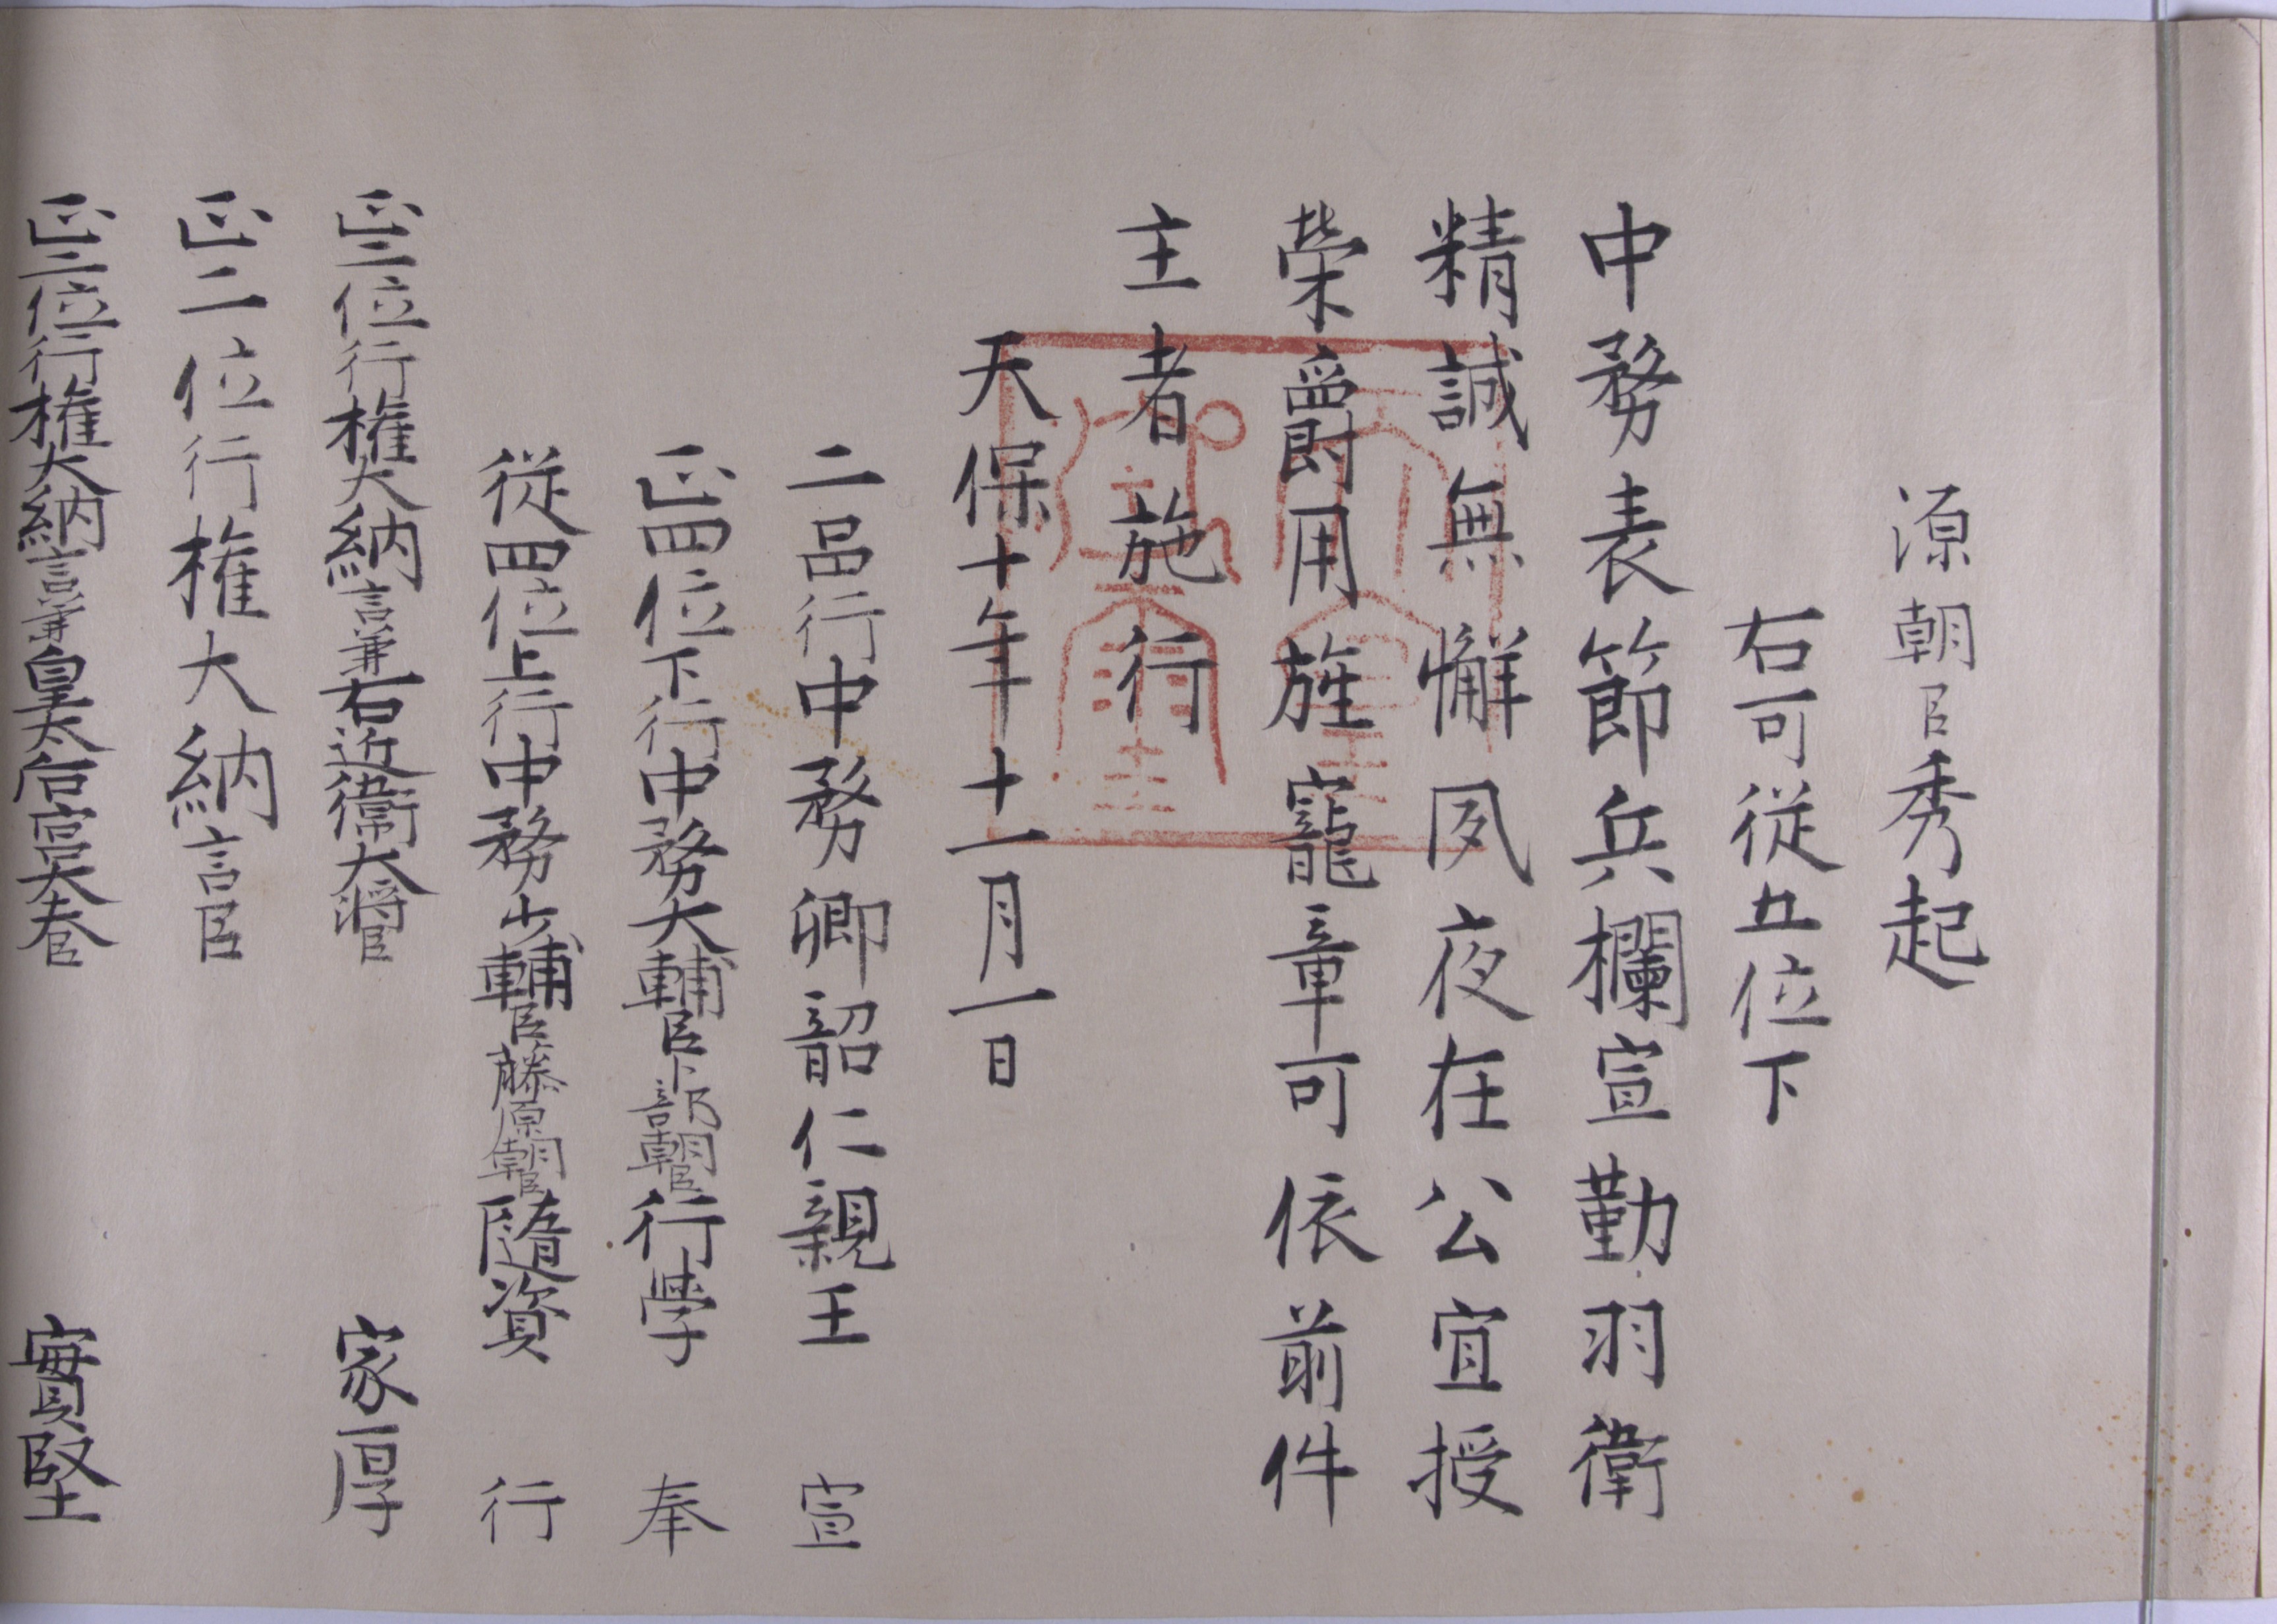 源朝臣秀起
右可従五位下
中務表節兵欄宣勤羽衛
精誠無懈夙夜在公宜授
榮爵用旌寵章可依前件
主者施行
天保十年十一月一日
二品行中務卿韶仁親王 宣
正四位下行中務大輔臣卜部朝臣行學 奉
従四位上行中務少輔臣藤原朝臣隨資 行
正二位行権大納言兼右近衛大将臣 家厚
正二位行権大納言臣
正二位行権大納言兼皇太后宮大夫臣 實堅